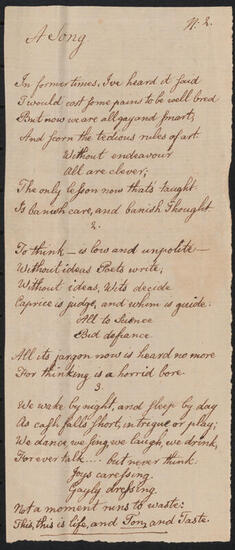 N. 2.
A Song
In former times, I've heard it said
I would cost some pains to be well bred
But now we are all gay and smart,
And scorn the tedious rules of art
Without endeavour
All are clever;
The only lesson now that's taught
Is banish care, and banish Thought
2.
To think – is low and unpolite –
Without ideas Poets write,
Without ideas, Wits decide
Caprice is judge, and whim is guide:
All to Science
Bid defiance
All its jargon now is heard no more
For thinking is a horrid bore
3.
We wake by night, and sleep by day
As cash falls short, intrigue or play;
We dance, we sing, we laugh, we drink,
For ever talk .... but never think.
Joys caressing.
Gayly dressing.
Not a moment runs to waste:
This, this is life, and Ton, and Taste.